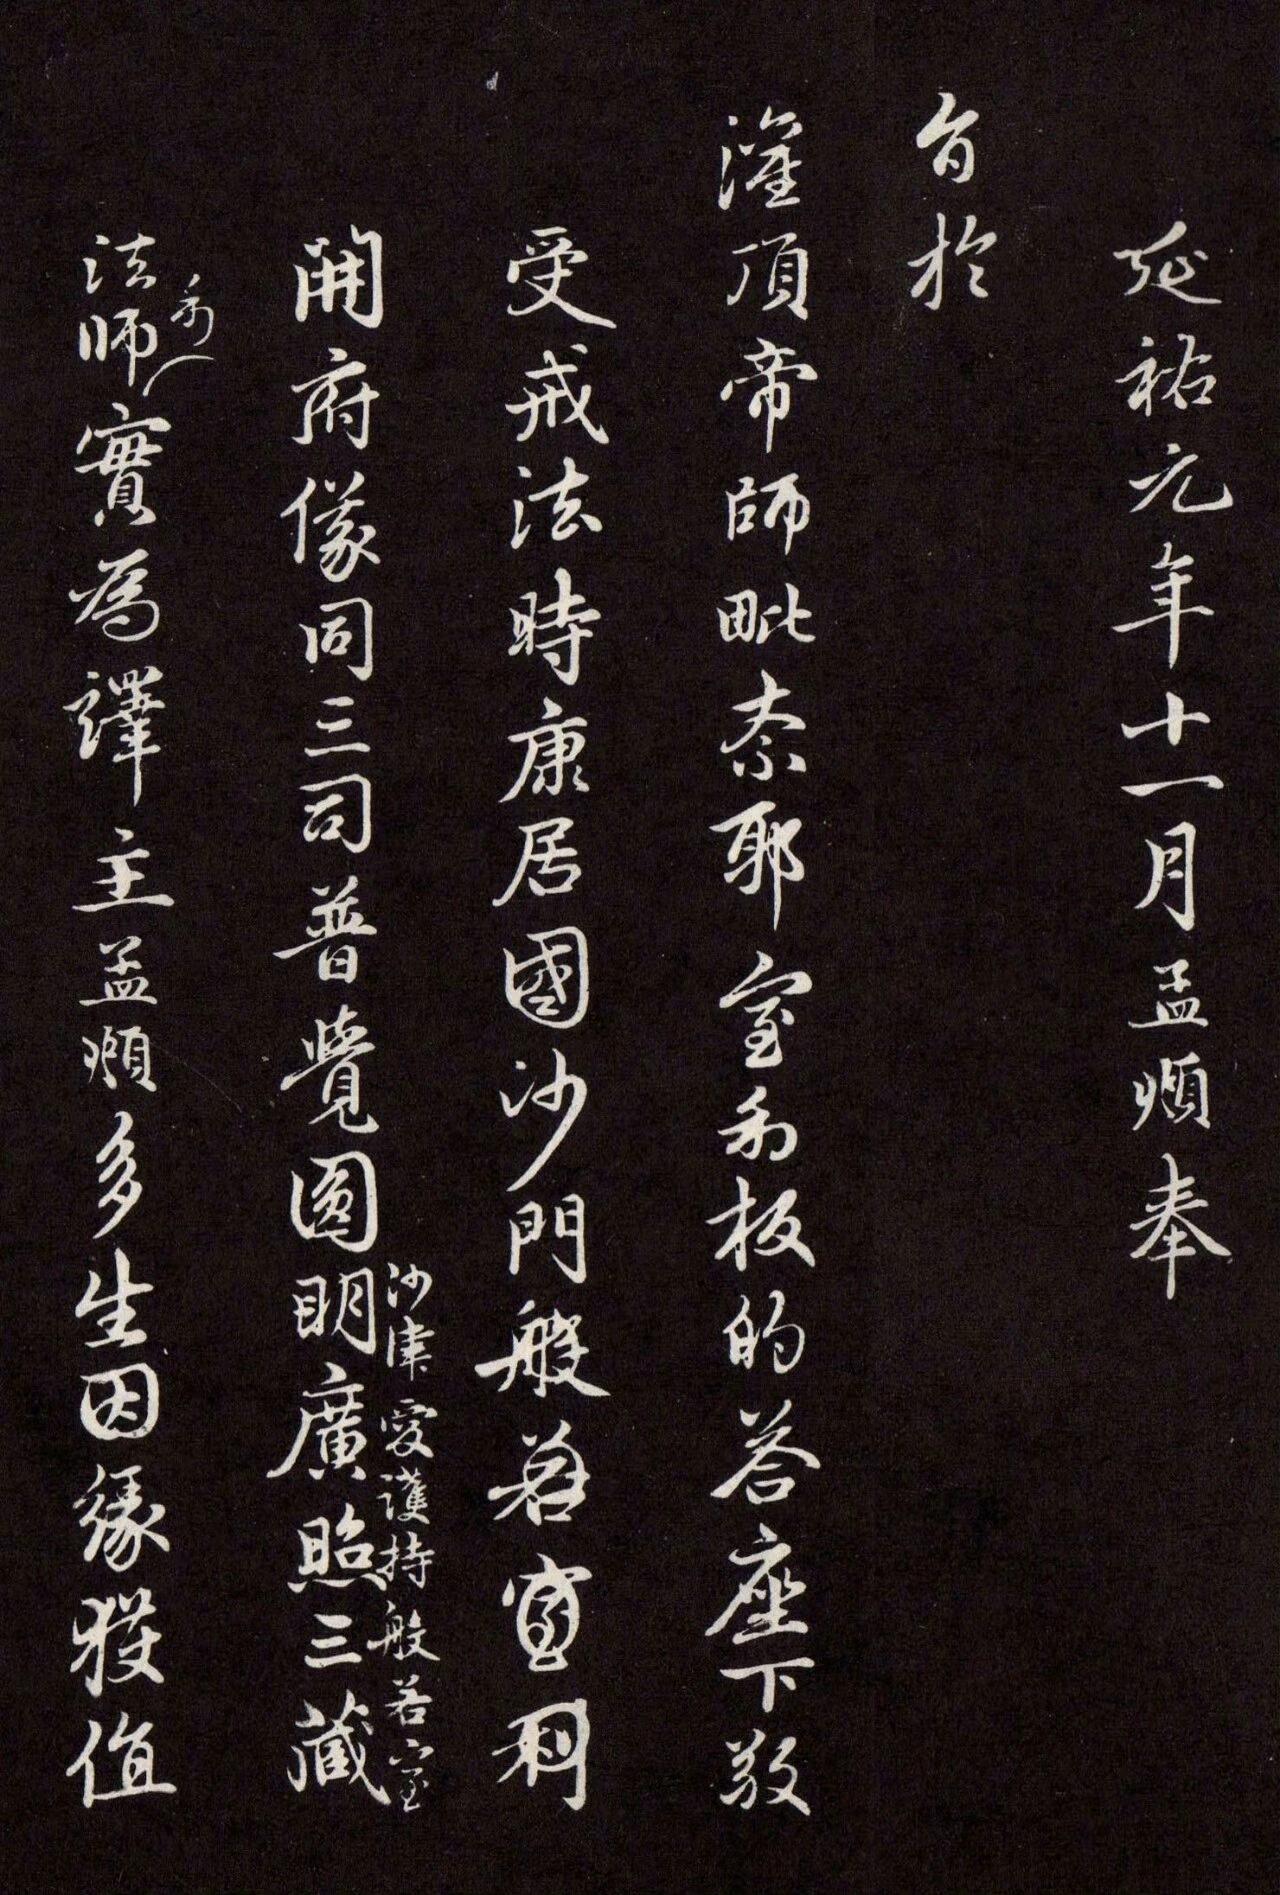 延祐元年十一月孟頫奉
旨於
灌頂帝師毗奈耶室利板的答座下敬
受戒法時康居國沙門般若室利
開府儀同三司普覺圓明廣照三藏
沙津愛護持般若室
利
法師實為譯主孟頫多生因緣獲值